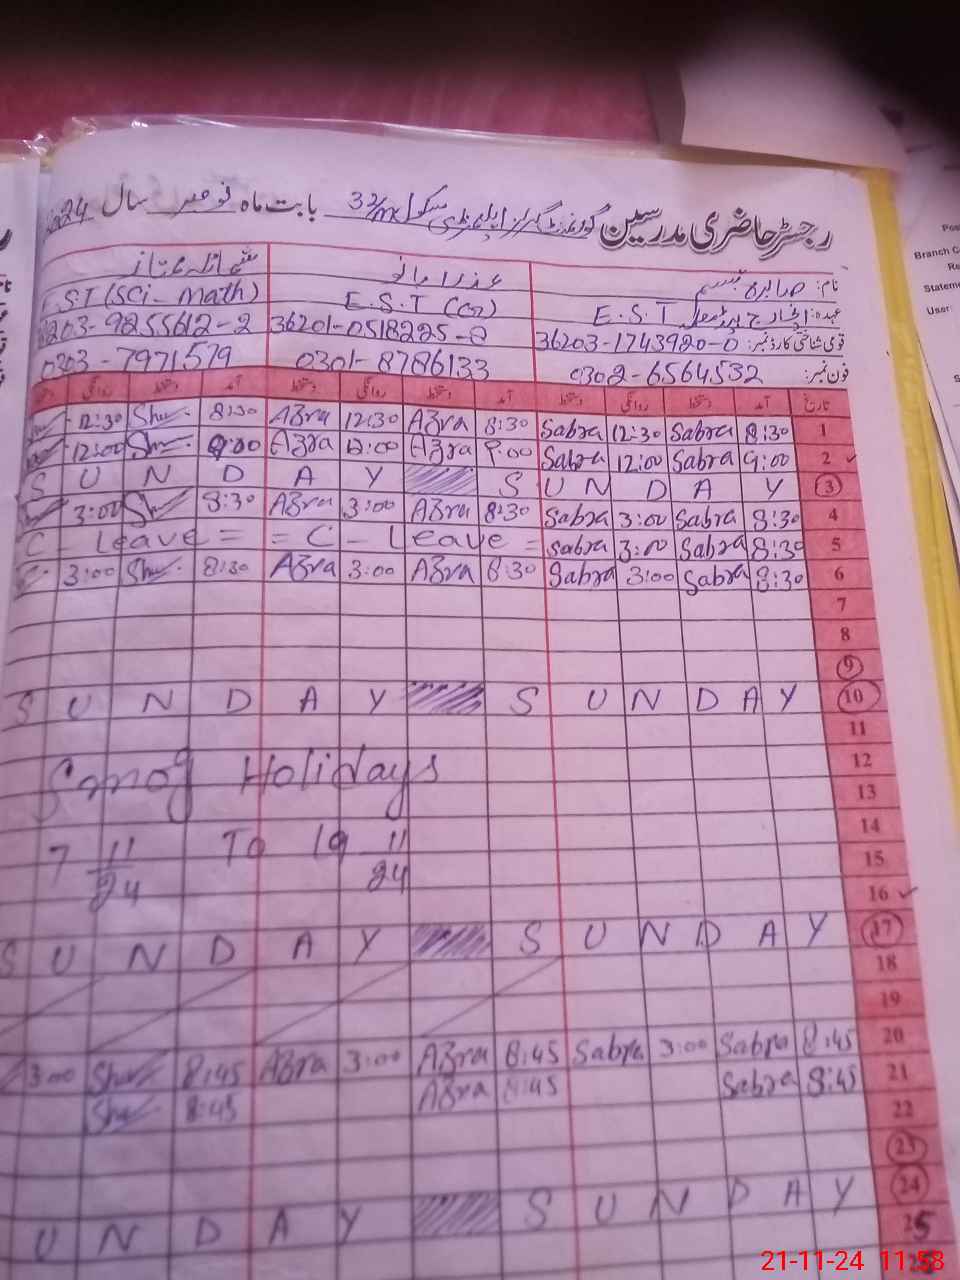 رجسٹر حاضری مدرسین گورنمنٹ گرلز ایلیمنٹری سکول 32/M بابت ماہ نومبر سال 2024
نام: صابرہ تبسم عذرا بانو
عہدہ: انچارج ہیڈ مسٹریس E.S.T E.S.T (Sci-Math)
قومی شناختی کارڈ نمبر: 36203-1743920-0 36201-0518225-8 203-9255612-2
فون نمبر: 0302-6564532 0301-8786133 0303-7971579
تاریخ آمد دستخط روانگی دستخط آمد دستخط روانگی دستخط آمد دستخط روانگی
12:30 8:30 Azra 12:30 Azra 8:30 Sabra 12:30 Sabra 8:30 1
12:00 9:00 Azra 12:00 Azra 9:00 Sabra 12:00 Sabra 9:00 2
S U N D A Y S U N D A Y 3
3:00 8:30 Azra 3:00 Azra 8:30 Sabra 3:00 Sabra 8:30 4
C - Leave = = C - Leave = Sabra 3:00 Sabra 8:30 5
3:00 8:30 Azra 3:00 Azra 8:30 Sabra 3:00 Sabra 8:30 6
7
8
9
S U N D A Y S U N D A Y 10
11
Smog Holidays 12
13
14
7 11/24 To 19 11/24 15
16
S U N D A Y S U N D A Y 17
18
19
3:00 8:45 Azra 3:00 Azra 8:45 Sabra 3:00 Sabra 8:45 20
8:45 Azra 8:45 Sabra 8:45 21
22
23
U N D A Y S U N D A Y 24
25
Branch
Stateme
User
21-11-24 11:58